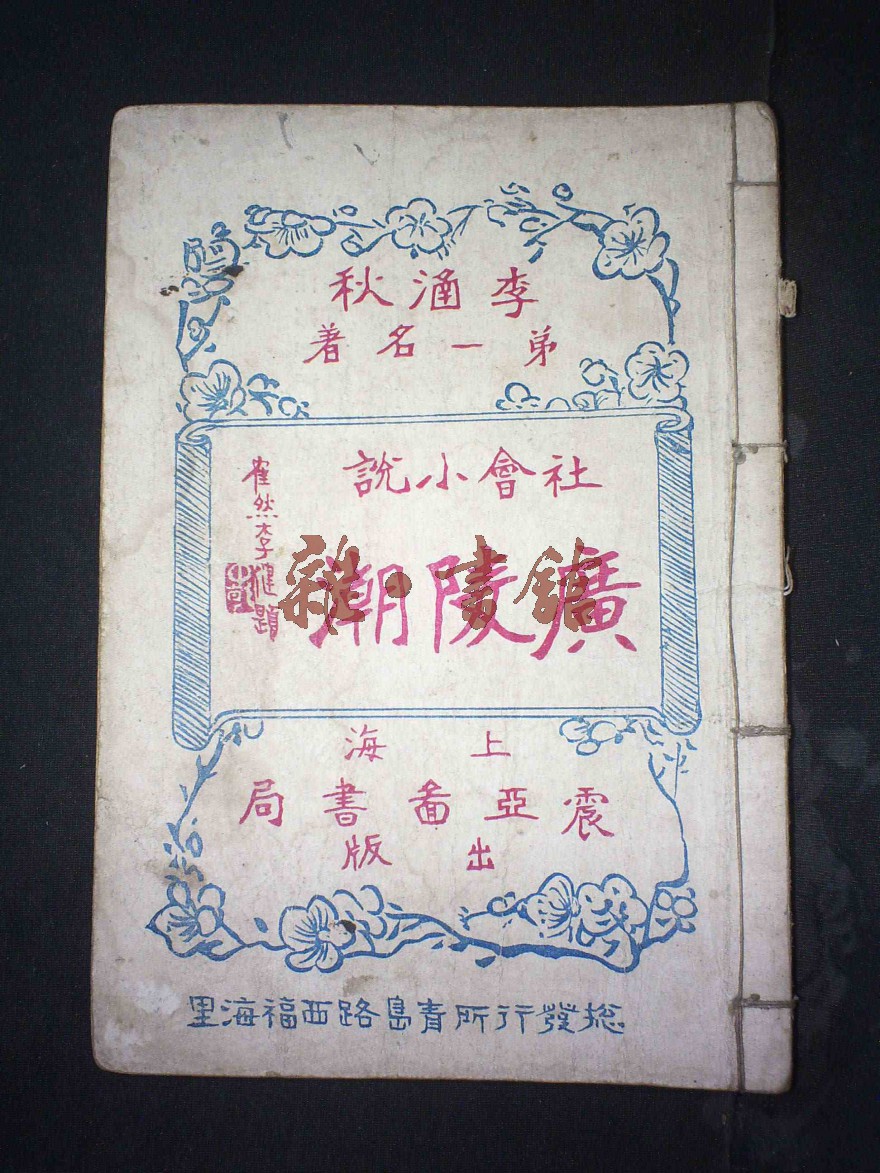 李涵秋
弟一名著
社會小說
廣陵潮
隺然李健題
雜·書館
上海
震亞啚書局
出版
捴發行所青島路西福海里